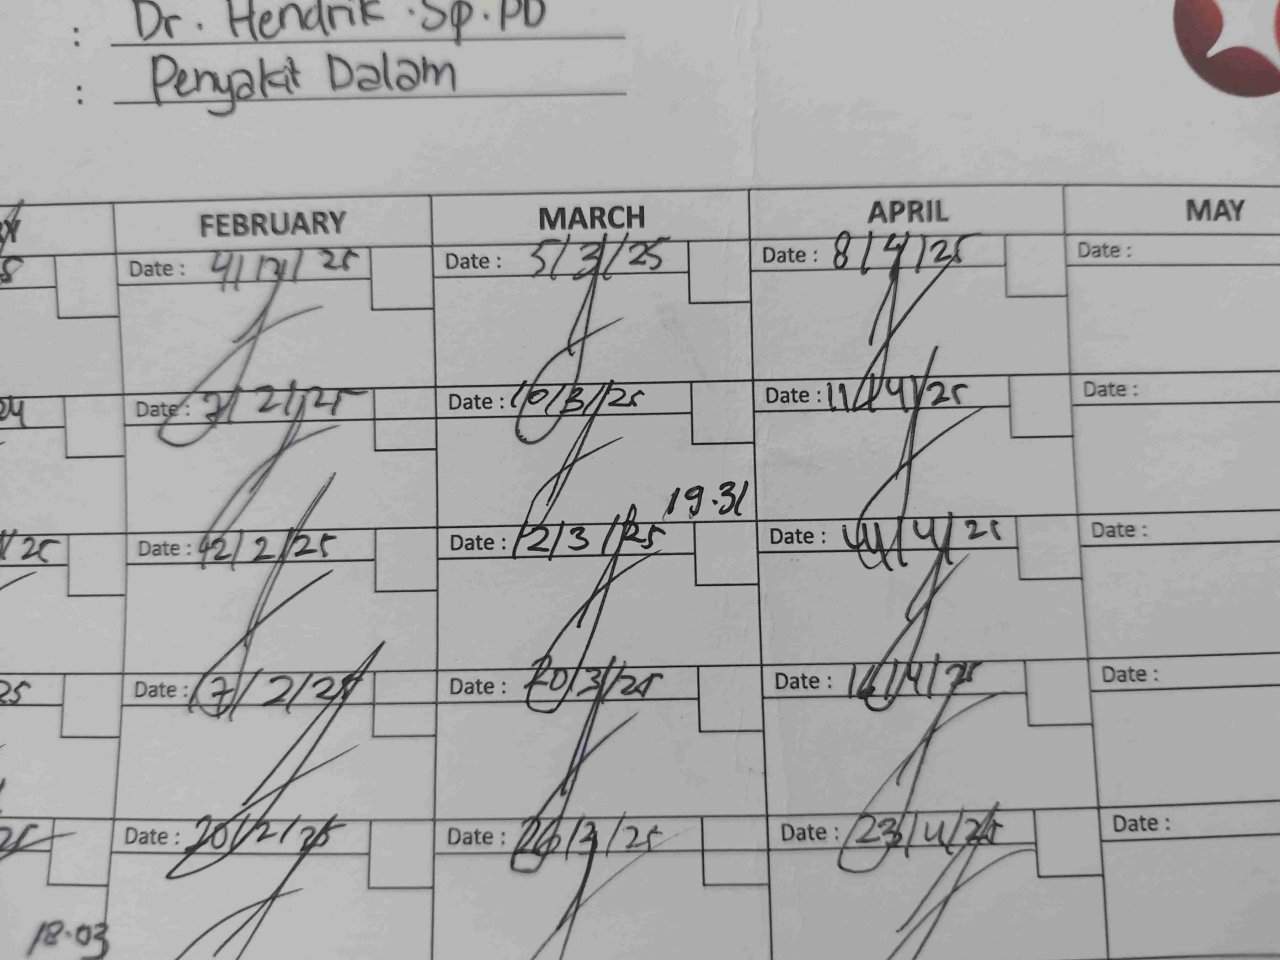 : Dr. Hendrik .Sp.PD
: Penyakit Dalam
FEBRUARY MARCH APRIL MAY
Date : 4/2/25 Date : 5/3/25 Date : 8/4/25 Date :
Date : 7/2/25 Date : 10/3/25 Date : 11/4/25 Date :
19.31
/25 Date : 12/2/25 Date : 12/3/25 Date : 14/4/25 Date :
25 Date : 17/2/25 Date : 20/3/25 Date : 16/4/25 Date :
25 Date : 20/2/25 Date : 26/3/25 Date : 23/4/25 Date :
18.03